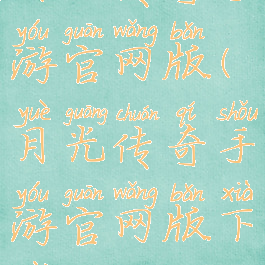 yóu guān wǎng bǎn
游官网版(
yuè guāng chuán qí shǒu
月光传奇手
yóu guān wǎng bǎn xià
游官网版下